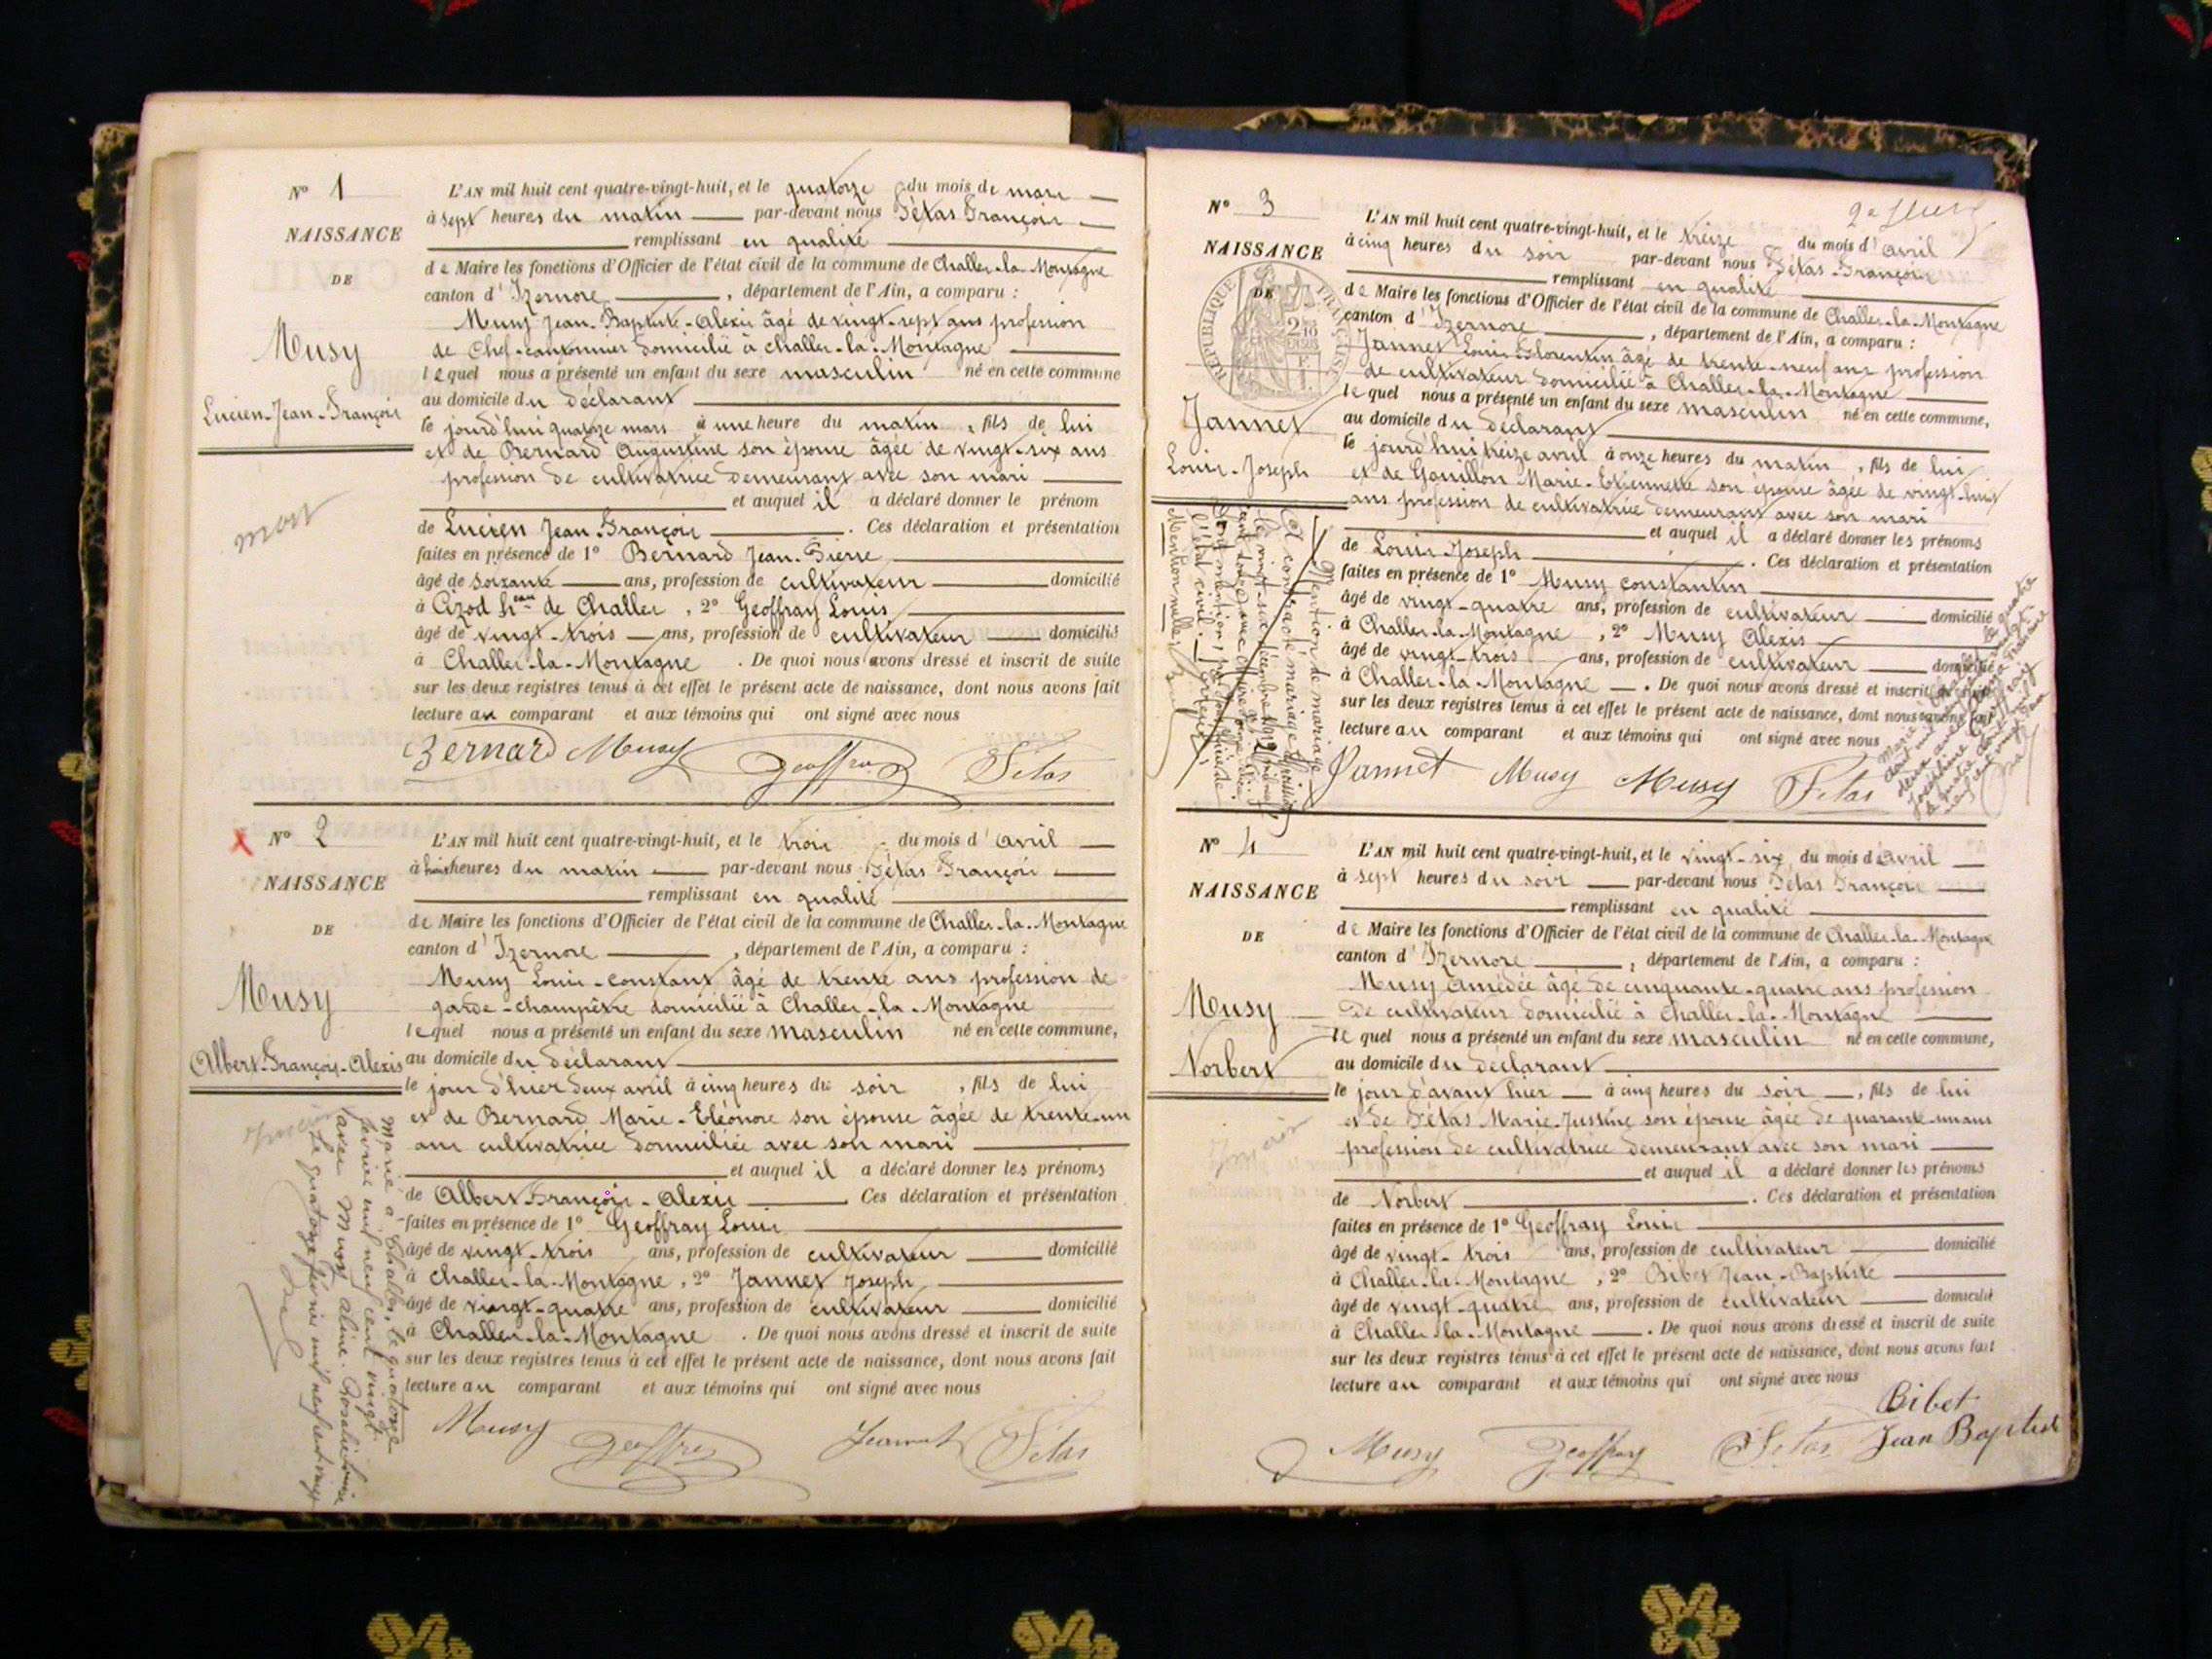 N° 1
NAISSANCE
DE
Musy
Lucien-Jean-François
mort
L'AN mil huit cent quatre-vingt-huit, et le quatorze du mois de mars
à sept heures du matin par-devant nous Tétas François
remplissant en qualité
de Maire les fonctions d'Officier de l'état civil de la commune de Challes-la-Montagne
canton d'Izernore, département de l'Ain, a comparu :
Musy Jean-Baptiste-Alexis âgé de vingt-sept ans profession
de Chef-cantonnier domicilié à Challes-la-Montagne
lequel nous a présenté un enfant du sexe masculin né en cette commune
au domicile du déclarant
le jourd'hui quatorze mars à une heure du matin, fils de lui
et de Bernard Augustine son épouse âgée de vingt-six ans
profession de cultivatrice demeurant avec son mari
et auquel il a déclaré donner le prénom
de Lucien Jean-François. Ces déclaration et présentation
faites en présence de 1° Bernard Jean-Pierre
âgé de soixante ans, profession de cultivateur domicilié
à Cizod heau de Challes, 2° Geoffray Louis
âgé de vingt-trois ans, profession de cultivateur domicilié
à Challes-la-Montagne. De quoi nous avons dressé et inscrit de suite
sur les deux registres tenus à cet effet le présent acte de naissance, dont nous avons fait
lecture au comparant et aux témoins qui ont signé avec nous
Bernard Musy Geoffray Tétas
N° 2
NAISSANCE
DE
Musy
Albert-François-Alexis
Marié à Challes, le quatorze
février mil neuf cent vingt
avec Musy Aline-Rosalie-Louise
Le quatorze février mil neuf cent vingt
L'AN mil huit cent quatre-vingt-huit, et le trois du mois d'avril
à huit heures du matin par-devant nous Tétas François
remplissant en qualité
de Maire les fonctions d'Officier de l'état civil de la commune de Challes-la-Montagne
canton d'Izernore, département de l'Ain, a comparu :
Musy Louis-Constant âgé de trente ans profession de
garde-champêtre domicilié à Challes-la-Montagne
lequel nous a présenté un enfant du sexe masculin né en cette commune,
au domicile du déclarant
le jour d'hier deux avril à cinq heures du soir, fils de lui
et de Bernard Marie-Eléonore son épouse âgée de trente-un
ans cultivatrice domiciliée avec son mari
et auquel il a déclaré donner les prénoms
de Albert François-Alexis Ces déclaration et présentation
faites en présence de 1° Geoffray Louis
âgé de vingt-trois ans, profession de cultivateur domicilié
à Challes-la-Montagne, 2° Jannet Joseph
âgé de vingt-quatre ans, profession de cultivateur domicilié
à Challes-la-Montagne. De quoi nous avons dressé et inscrit de suite
sur les deux registres tenus à cet effet le présent acte de naissance, dont nous avons fait
lecture au comparant et aux témoins qui ont signé avec nous
Musy Geoffray Jeannet Tétas
N° 3
NAISSANCE
DE
RÉPUBLIQUE FRANÇAISE
Jannet
Louis-Joseph
Mention de mariage
Mention nulle
L'AN mil huit cent quatre-vingt-huit, et le treize du mois d'avril
à cinq heures du soir par-devant nous Tétas François
remplissant en qualité
de Maire les fonctions d'Officier de l'état civil de la commune de Challes-la-Montagne
canton d'Izernore, département de l'Ain, a comparu :
Jannet Louis-Florentin âgé de trente-neuf ans profession
de cultivateur domicilié à Challes-la-Montagne
lequel nous a présenté un enfant du sexe masculin né en cette commune,
au domicile du déclarant
le jourd'hui treize avril à onze heures du matin, fils de lui
et de Gouillon Marie-Etiennette son épouse âgée de vingt-huit
ans profession de cultivatrice demeurant avec son mari
et auquel il a déclaré donner les prénoms
de Louis-Joseph. Ces déclaration et présentation
faites en présence de 1° Musy Constantin
âgé de vingt-quatre ans, profession de cultivateur domicilié
à Challes-la-Montagne, 2° Musy Alexis
âgé de vingt-trois ans, profession de cultivateur domicilié
à Challes-la-Montagne. De quoi nous avons dressé et inscrit de suite
sur les deux registres tenus à cet effet le présent acte de naissance, dont nous avons fait
lecture au comparant et aux témoins qui ont signé avec nous
Jannet Musy Musy Tétas
N° 4
NAISSANCE
DE
Musy
Norbert
L'AN mil huit cent quatre-vingt-huit, et le vingt-six du mois d'avril
à sept heures du soir par-devant nous Tétas François
remplissant en qualité
de Maire les fonctions d'Officier de l'état civil de la commune de Challes-la-Montagne
canton d'Izernore, département de l'Ain, a comparu :
Musy Amédée âgé de cinquante-quatre ans profession
de cultivateur domicilié à Challes-la-Montagne
lequel nous a présenté un enfant du sexe masculin né en cette commune,
au domicile du déclarant
le jour d'avant hier à cinq heures du soir, fils de lui
et de Tétas Marie-Justine son épouse âgée de quarante-un ans
profession de cultivatrice demeurant avec son mari
et auquel il a déclaré donner les prénoms
de Norbert. Ces déclaration et présentation
faites en présence de 1° Geoffray Louis
âgé de vingt-trois ans, profession de cultivateur domicilié
à Challes-la-Montagne, 2° Bibet Jean-Baptiste
âgé de vingt-quatre ans, profession de cultivateur domicilié
à Challes-la-Montagne. De quoi nous avons dressé et inscrit de suite
sur les deux registres tenus à cet effet le présent acte de naissance, dont nous avons fait
lecture au comparant et aux témoins qui ont signé avec nous
Musy Geoffray Tétas Bibet
Jean Baptiste